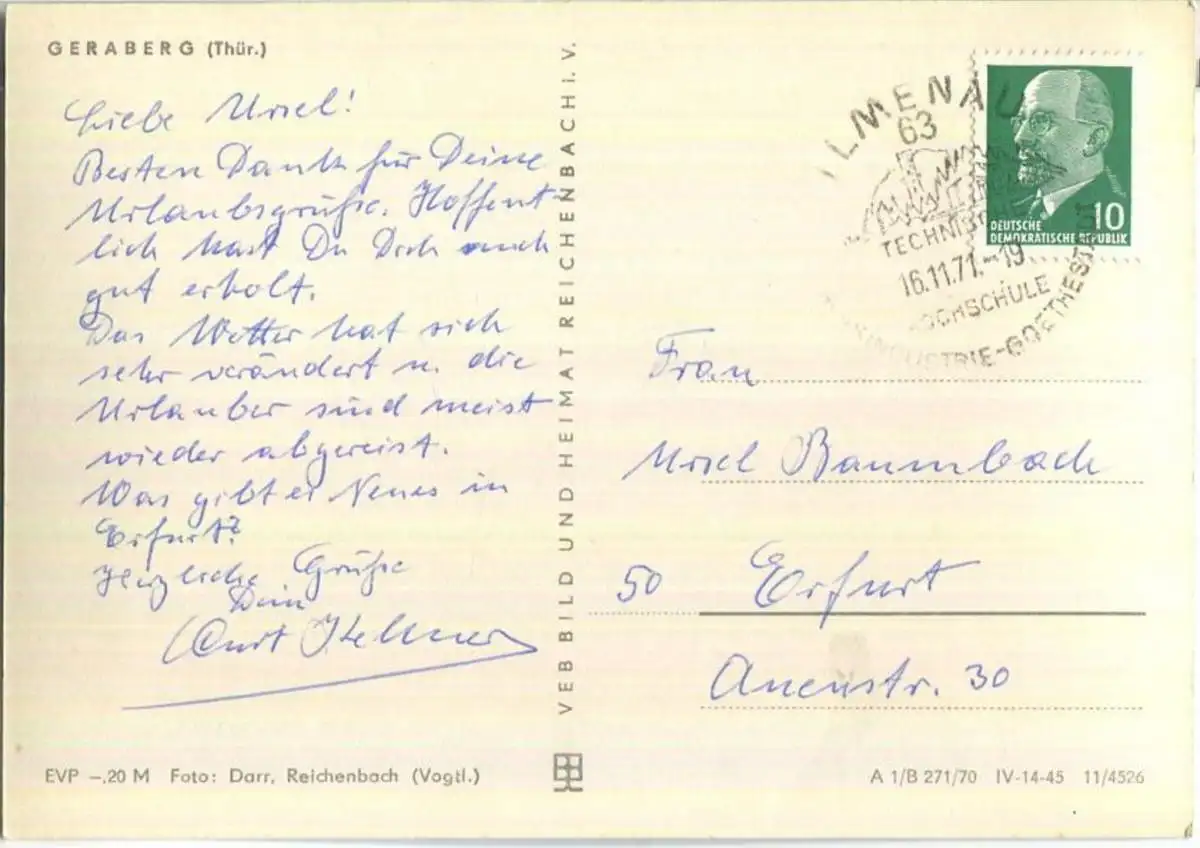 GERABERG (Thür.)
Liebe Ursel!
Besten Dank für Deine
Urlaubsgrüße. Hoffent-
lich hast Du Dich auch
gut erholt.
Das Wetter hat sich
sehr verändert u. die
Urlauber sind meist
wieder abgereist.
Was gibt es Neues in
Erfurt?
Herzliche Grüße
Dein
Curt
EVP –,20 M Foto: Darr, Reichenbach (Vogtl.)
VEB BILD UND HEIMAT REICHENBACH I. V.
ILMENAU
63
16.11.71.-19
HOCHSCHULE
INDUSTRIE-GOETHESTADT
10
DEUTSCHE
DEMOKRATISCHE REPUBLIK
Frau
Ursel Baumbach
50 Erfurt
Auenstr. 30
A 1/B 271/70 IV-14-45 11/4526